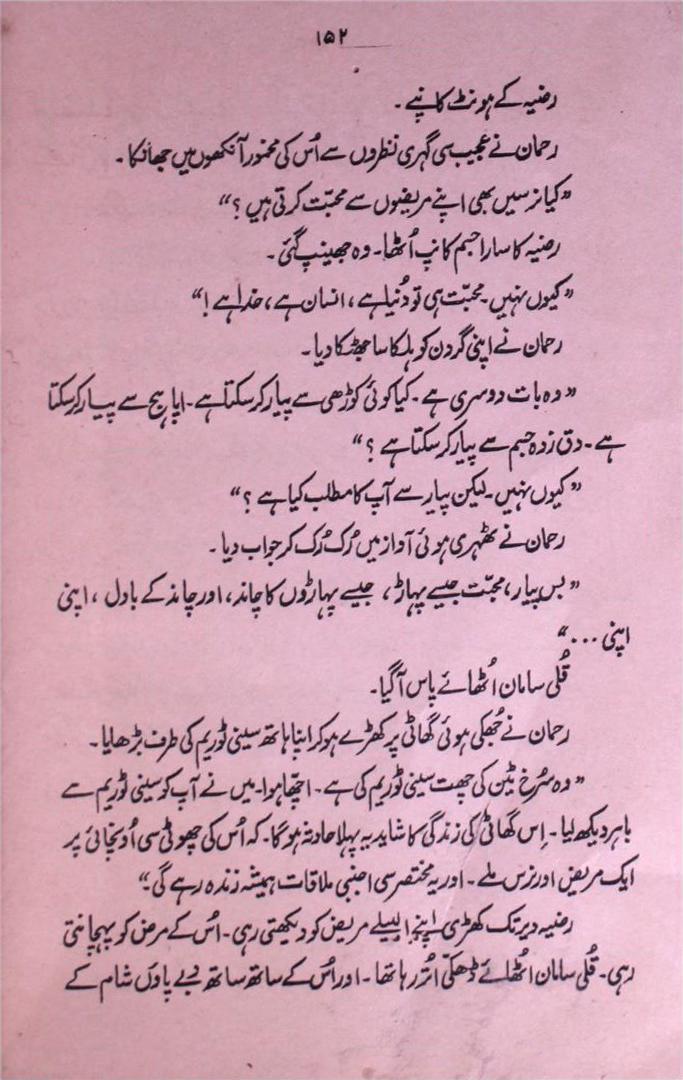 ۱۵۲
رضیہ کے ہونٹ کانپے۔
رحمان نے عجیب سی گہری نظروں سے اُس کی مخمور آنکھوں میں جھانکا۔
”کیا نرسیں بھی اپنے مریضوں سے محبّت کرتی ہیں؟“
رضیہ کا سارا جسم کانپ اُٹھا۔ وہ جھینپ گئی۔
”کیوں نہیں۔ محبّت ہی تو دُنیا ہے، انسان ہے، خدا ہے!“
رحمان نے اپنی گردن کو ہلکا سا جھٹکا دیا۔
”وہ بات دوسری ہے۔ کیا کوئی کوڑھی سے پیار کر سکتا ہے۔ اپاہیج سے پیار کر سکتا
ہے۔ دق زدہ جسم سے پیار کر سکتا ہے؟“
”کیوں نہیں۔ لیکن پیار سے آپ کا مطلب کیا ہے؟“
رحمان نے ٹھہری ہوئی آواز میں رُک رُک کر جواب دیا۔
”بس پیار، محبّت جیسے پہاڑ، جیسے پہاڑوں کا چاند، اور چاند کے بادل، اپنی
اپنی ...“
قُلی سامان اُٹھائے پاس آ گیا۔
رحمان نے جُھکی ہوئی گھاٹی پر کھڑے ہو کر اپنا ہاتھ سینی ٹوریم کی طرف بڑھایا۔
”وہ سُرخ ٹین کی چھت سینی ٹوریم کی ہے۔ اچّھا ہوا۔ میں نے آپ کو سینی ٹوریم سے
باہر دیکھ لیا۔ اِس گھاٹی کی زندگی کا شاید یہ پہلا حادثہ ہوگا۔ کہ اُس کی چھوٹی سی اُونچائی پر
ایک مریض اور نرس ملے۔ اور یہ مختصر سی اجنبی ملاقات ہمیشہ زندہ رہے گی۔“
رضیہ دیر تک کھڑی اپنے البیلے مریض کو دیکھتی رہی۔ اُس کے مرض کو پہچانتی
رہی۔ قُلی سامان اُٹھائے ڈھکّی اُتر رہا تھا۔ اور اُس کے ساتھ ساتھ دبے پاؤں شام کے